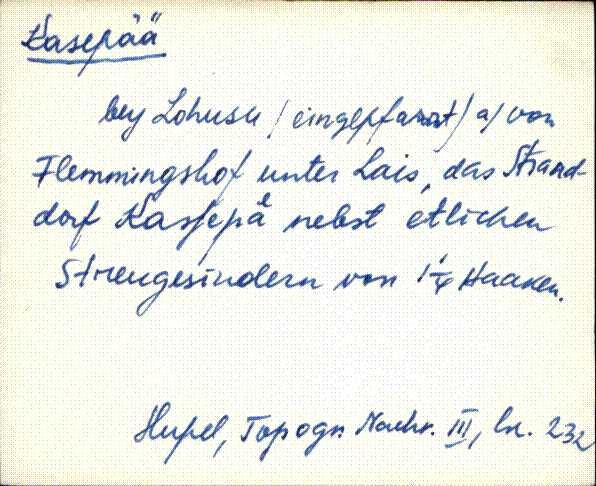 Kasepää
bey Lohusu (eingepfarrt) a) von
Flemmingshof unter Lais, das Strand-
dorf Kassepä nebst etlichen
Streugesindern von 1¼ Haaken.
Hupel, Topogr. Nachr. III, lk. 232